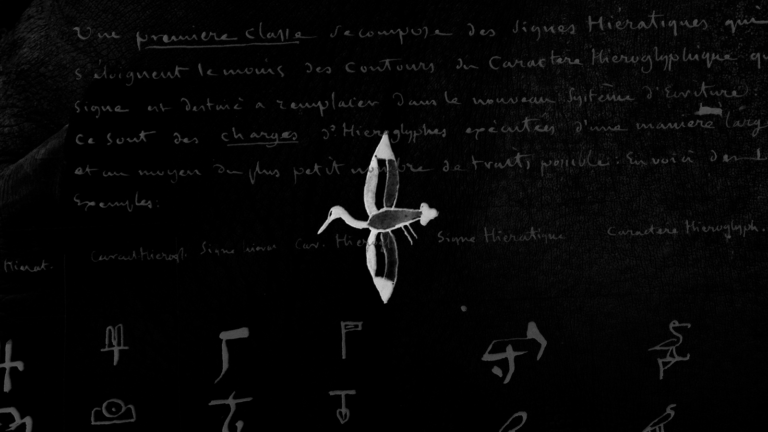 Une première Classe se compose des Signes Hiératiques qui
s'éloignent le moins des Contours du Caractère Hiéroglyphique qu
signe est destiné a remplacer dans le nouveau Système d'Ecriture:
ce sont des charges d'Hieroglyphes exécutées d'une manière larg
et au moyen du plus petit nombre de traits possible: En voici
Exemples:
Hiérat. Signe Caractère Hieroglyph.
Signe Hiératique